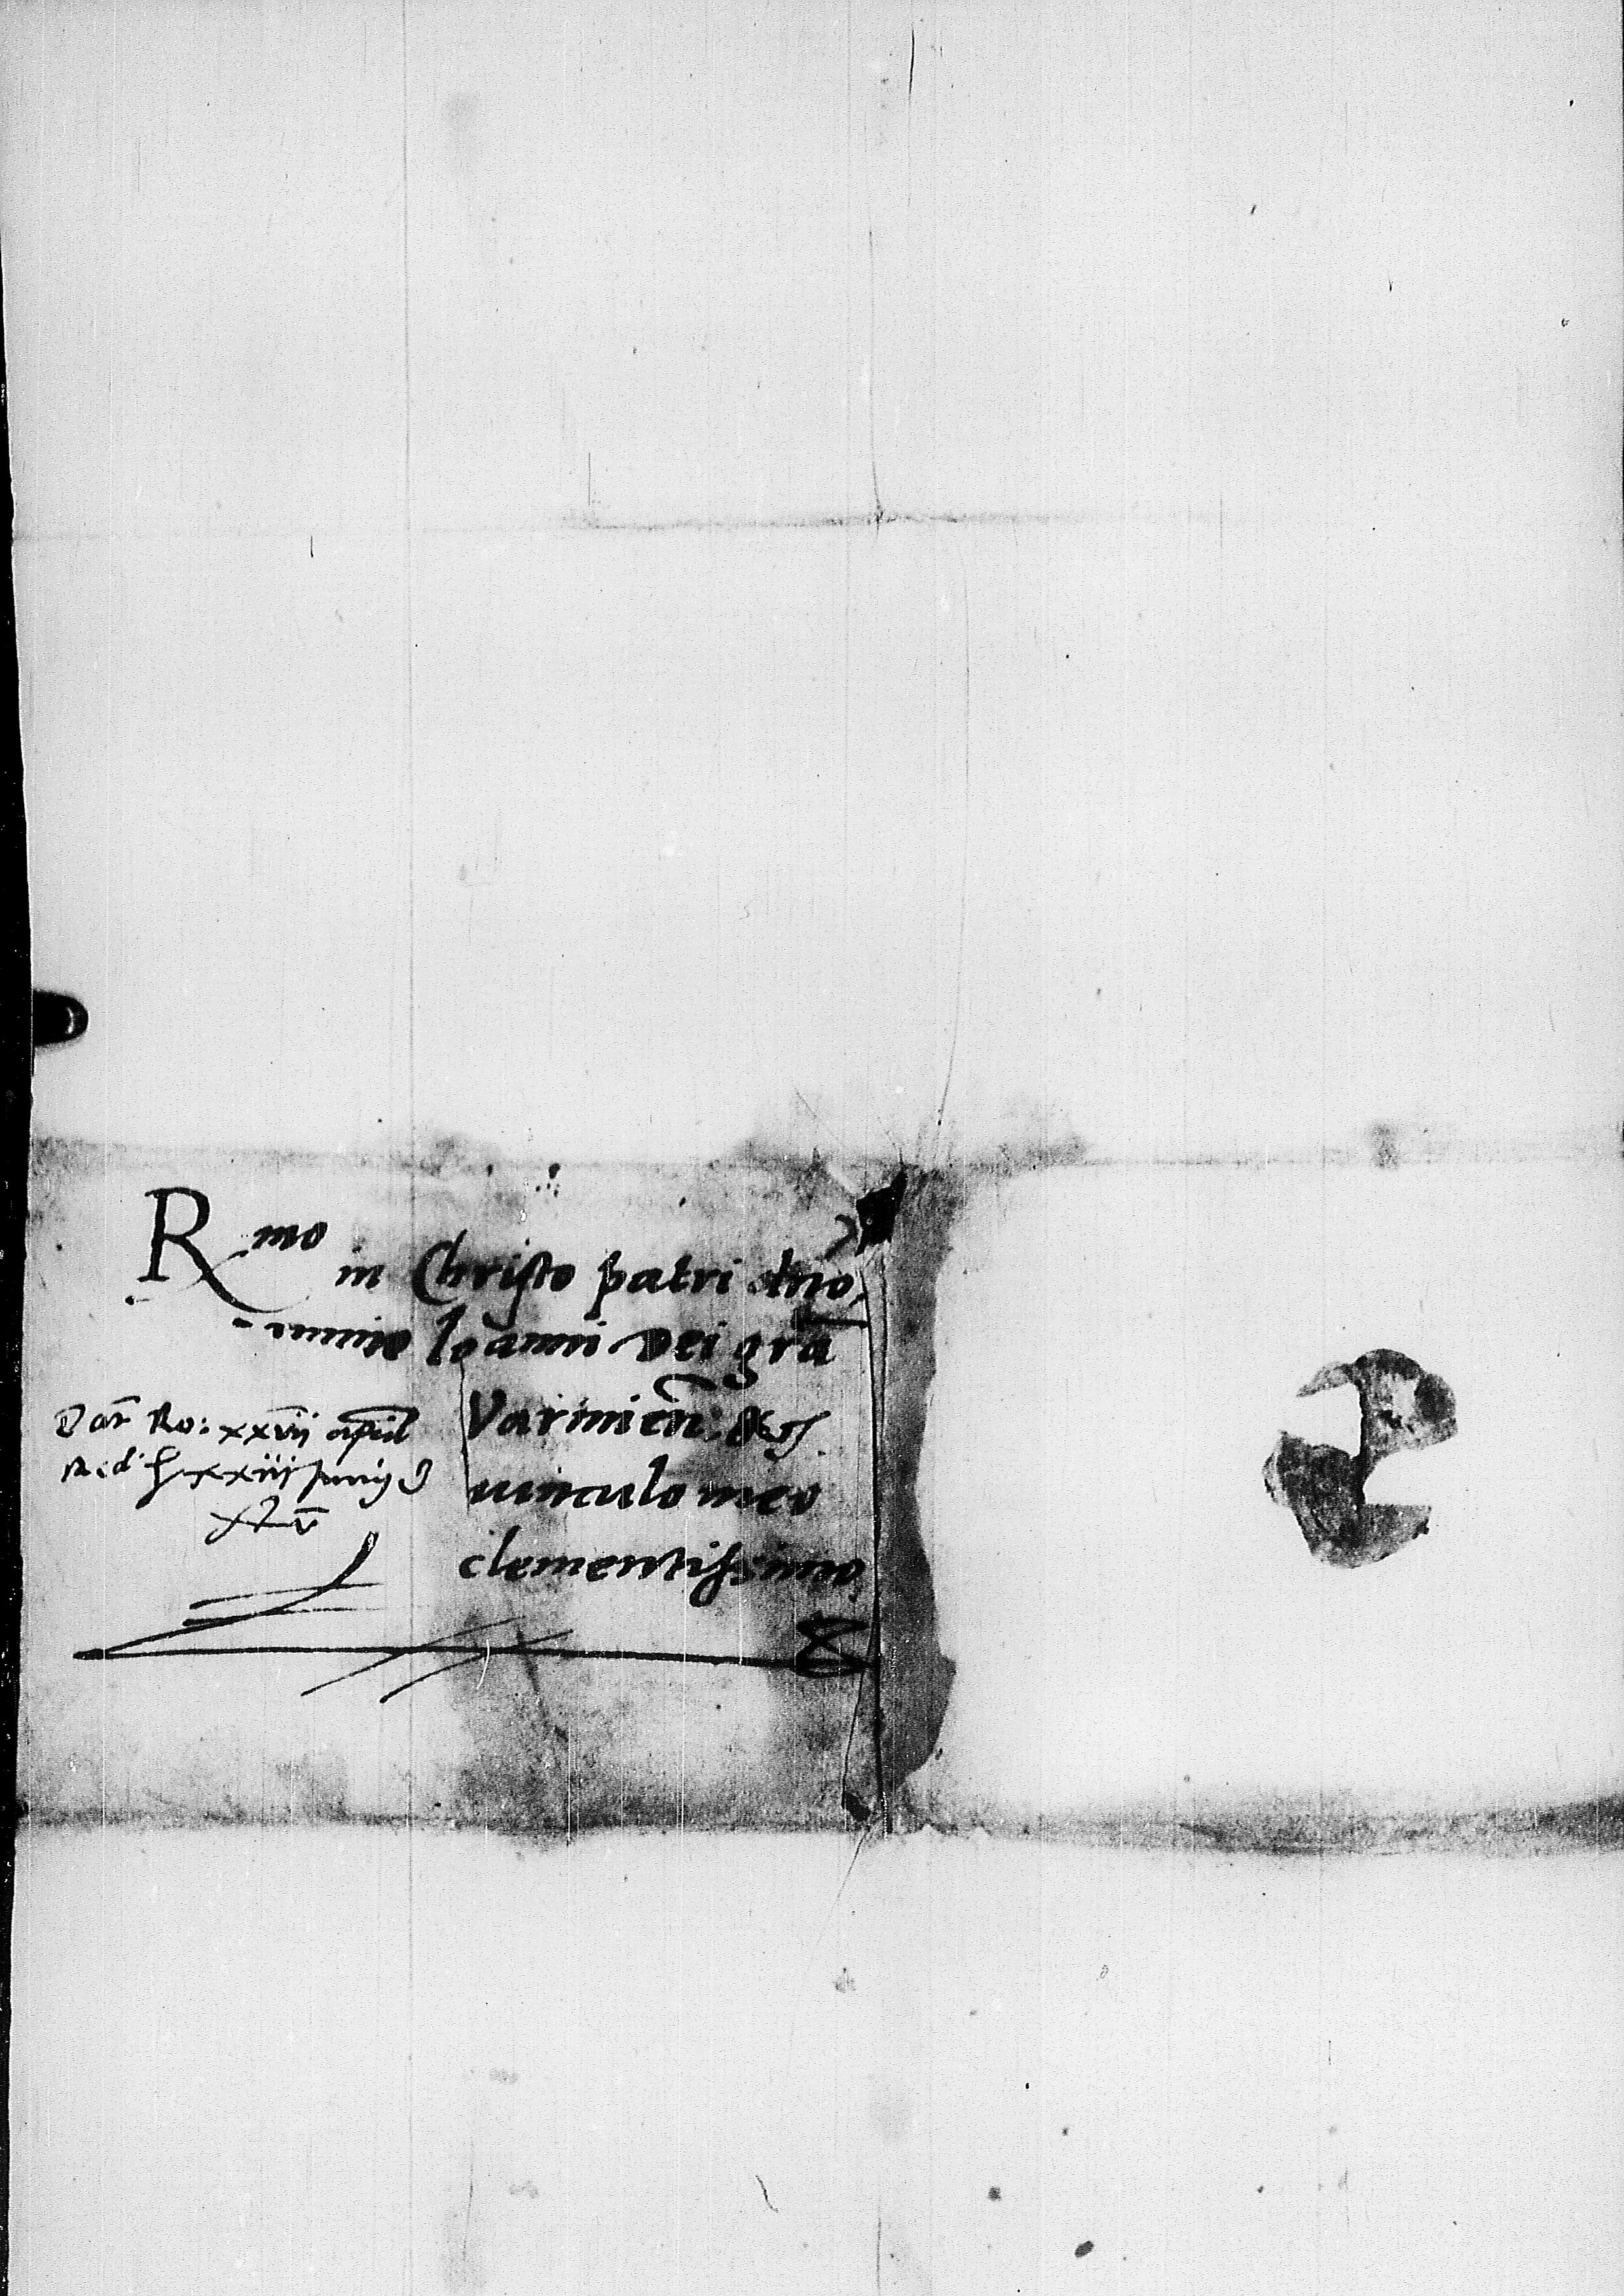 Rmo in Christo patri dno,
Ioanni Dei gra
Varmien: &
meo
clementissimo
Dat Ro: xxvii april
xxiii Junij